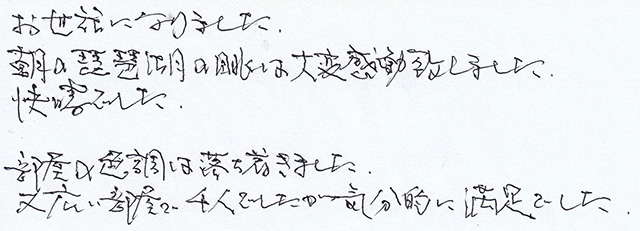 お世話になりました.
朝の琵琶湖の眺は大変感動致しました.
快晴でした.
部屋の色調は落ち着きました.
又広い部屋で4人でしたが気分的に満足でした.